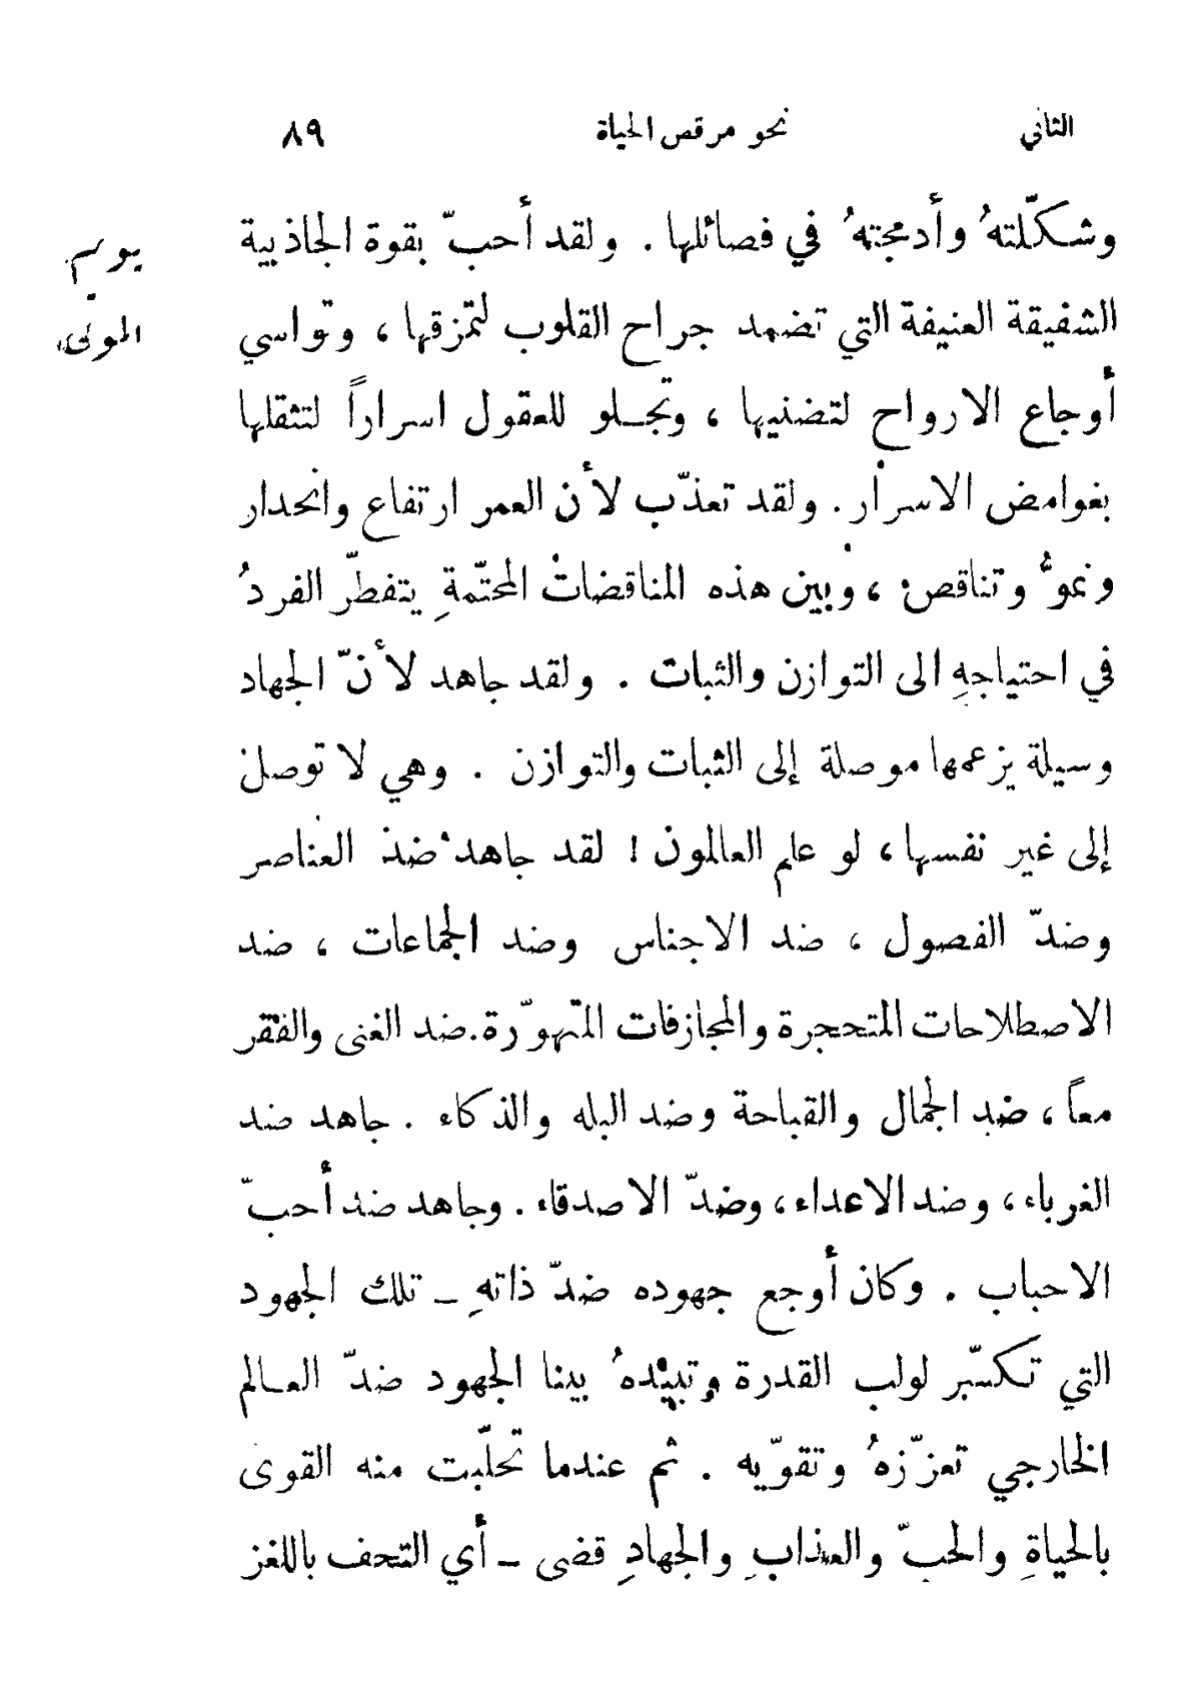 الثاني نحو مرقص الحياة ٨٩
وشكّلتهُ وأدمجتهُ في فصائلها . ولقد أحبّ بقوة الجاذبية
يوم
الشفيقة العنيفة التي تضمد جراح القلوب لتمزقها ، وتواسي
الموتى
أوجاع الارواح لتضنيها ، وتجلو للعقول اسراراً لتثقلها
بغوامض الاسرار . ولقد تعذّب لأن العمر ارتفاع وانحدار
ونموٌّ وتناقص ، وبين هذه المناقضات المحتّمةِ يتفطّر الفردُ
في احتياجهِ الى التوازن والثبات . ولقد جاهد لأنّ الجهاد
وسيلة يزعمها موصلة إلى الثبات والتوازن . وهي لا توصل
إلى غير نفسها ، لو علم العالمون ! لقد جاهد ضد العناصر
وضدّ الفصول ، ضد الاجناس وضد الجماعات ، ضد
الاصطلاحات المتحجرة والمجازفات المتهوّرة . ضد الغنى والفقر
معاً ، ضد الجمال والقباحة وضد البله والذكاء . جاهد ضد
الغرباء ، وضد الاعداء ، وضدّ الاصدقاء . وجاهد ضد أحبّ
الاحباب . وكان أوجع جهوده ضدّ ذاتهِ ــ تلك الجهود
التي تكسّر لولب القدرة وتبيدهُ بينا الجهود ضدّ العالم
الخارجي تعزّزهُ وتقوّيه . ثم عندما تحلّبت منه القوى
بالحياةِ والحبّ والعذابِ والجهادِ قضى ــ أي التحف باللغز